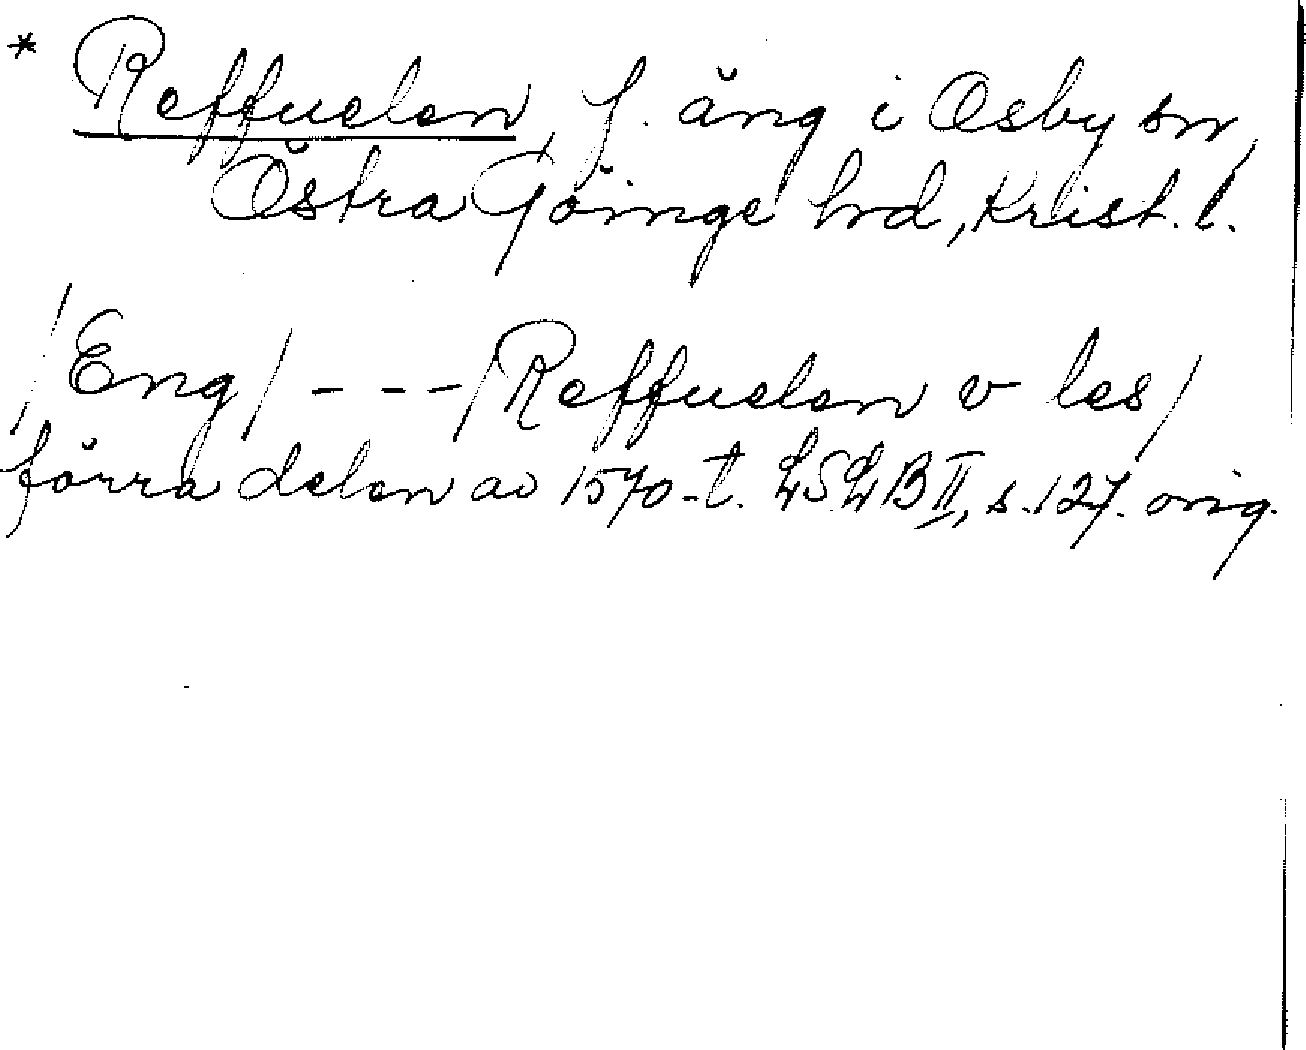 * Reffuelen, f. äng i Osby sn,
Östra Göinge hd, Krist. l.
/Eng/ - - - /Reffuelen v les/
förra delen av 1570-t. LSLB II, s. 127. orig.